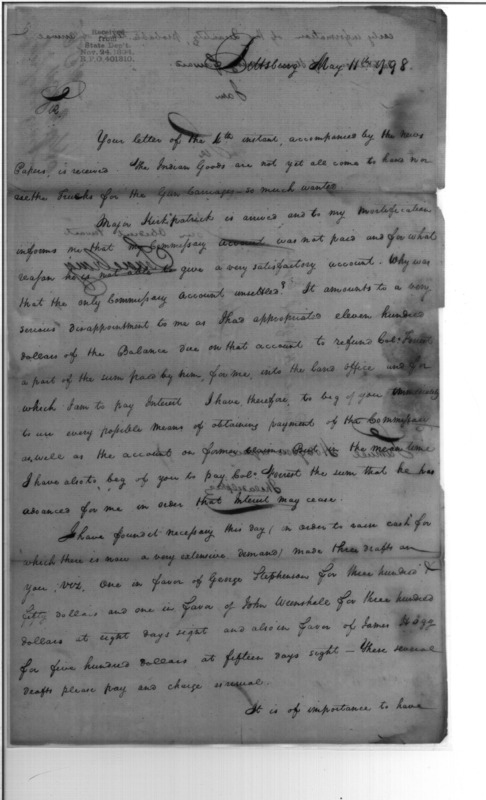 Received
from
State Dep't.
Nov. 24, 1894.
R.P.O. 401810.
Pittsburg May 11th 1798.
Sir
Your letter of the 4th instant, accompanied by the news
Papers, is received The Indian Goods are not yet all come to hand nor
are the Trucks for the Gun Carriages so much wanted
Major Kirkpatrick is arrived and to my mortification
informs me that my Commissary account was not paid and for what
reason he is not able to give a very satisfactory account. Why was
that the only Commissary account unsettled? It amounts to a very
serious disappointment to me as I had appropriated eleven hundred
dollars of the Balance due on that account to refund Col.
a part of the sum paid by him, for me, into the land office and for
which I am to pay Interest I have, therefore, to beg of you
to use every possible means of obtaining payment of the Commissary
as well as the account on former in the mean time
I have also to beg of you to pay Col. the sum that he has
advanced for me in order that Interest may cease.
I have found it necessary this day (in order to raise cash for
which there is now a very extensive demand) made three drafts on
you, viz, One in favor of George Stephenson for three hundred &
fifty dollars and one in favor of John for three hundred
dollars at eight days sight and also in favor of James
for five hundred dollars at fifteen days sight — These several
drafts please pay and charge
It is of importance to have